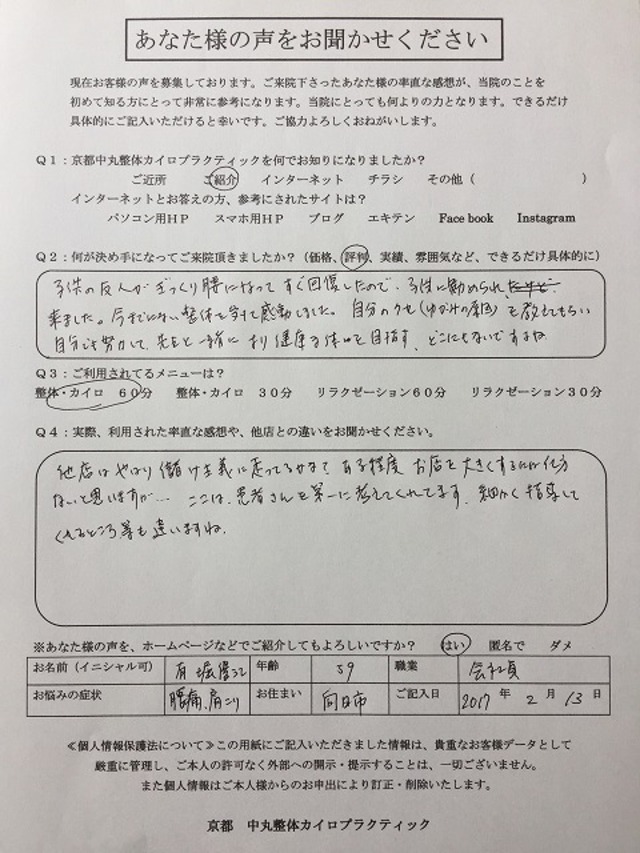 あなた様の声をお聞かせください
現在お客様の声を募集しております。ご来院下さったあなた様の率直な感想が、当院のことを
初めて知る方にとって非常に参考になります。当院にとっても何よりの力となります。できるだけ
具体的にご記入いただけると幸いです。ご協力よろしくおねがいします。
Q1：京都中丸整体カイロプラクティックを何でお知りになりましたか？
ご近所 ご紹介 インターネット チラシ その他（ ）
インターネットとお答えの方、参考にされたサイトは？
パソコン用HP スマホ用HP ブログ エキテン Face book Instagram
Q2：何が決め手になってご来院頂きましたか？（価格、評判、実績、雰囲気など、できるだけ具体的に）
子供の友人がぎっくり腰になって すぐ回復したので、子供に勧められ
来ました。今までにない整体で 感動しました。自分のクセ（ゆがみの原因）を教えてもらい
自分でも努力して、先生と一緒に より健康な体を目指す、どこにもないですよね
Q3：ご利用されてるメニューは？
整体・カイロ 60分 整体・カイロ 30分 リラクゼーション60分 リラクゼーション30分
Q4：実際、利用された率直な感想や、他店との違いをお聞かせください。
他店はやはり儲け主義に走ってるかなて ある程度 お店を大きくするには仕方
ないと思いますが… ここは、患者さんを第一に考えてくれてます、細かく指導して
くれるところ等も違いますね。
※あなた様の声を、ホームページなどでご紹介してもよろしいですか？ はい 匿名で ダメ
お名前（イニシャル可） 年齢 59 職業 会社員
お悩みの症状 腰痛、肩こり お住まい 向日市 ご記入日 2017 年 2 月 13 日
≪個人情報保護法について≫この用紙にご記入いただきました情報は、貴重なお客様データとして
厳重に管理し、ご本人の許可なく外部への開示・提示することは、一切ございません。
また個人情報はご本人様からのお申出により訂正・削除いたします。
京都 中丸整体カイロプラクティック